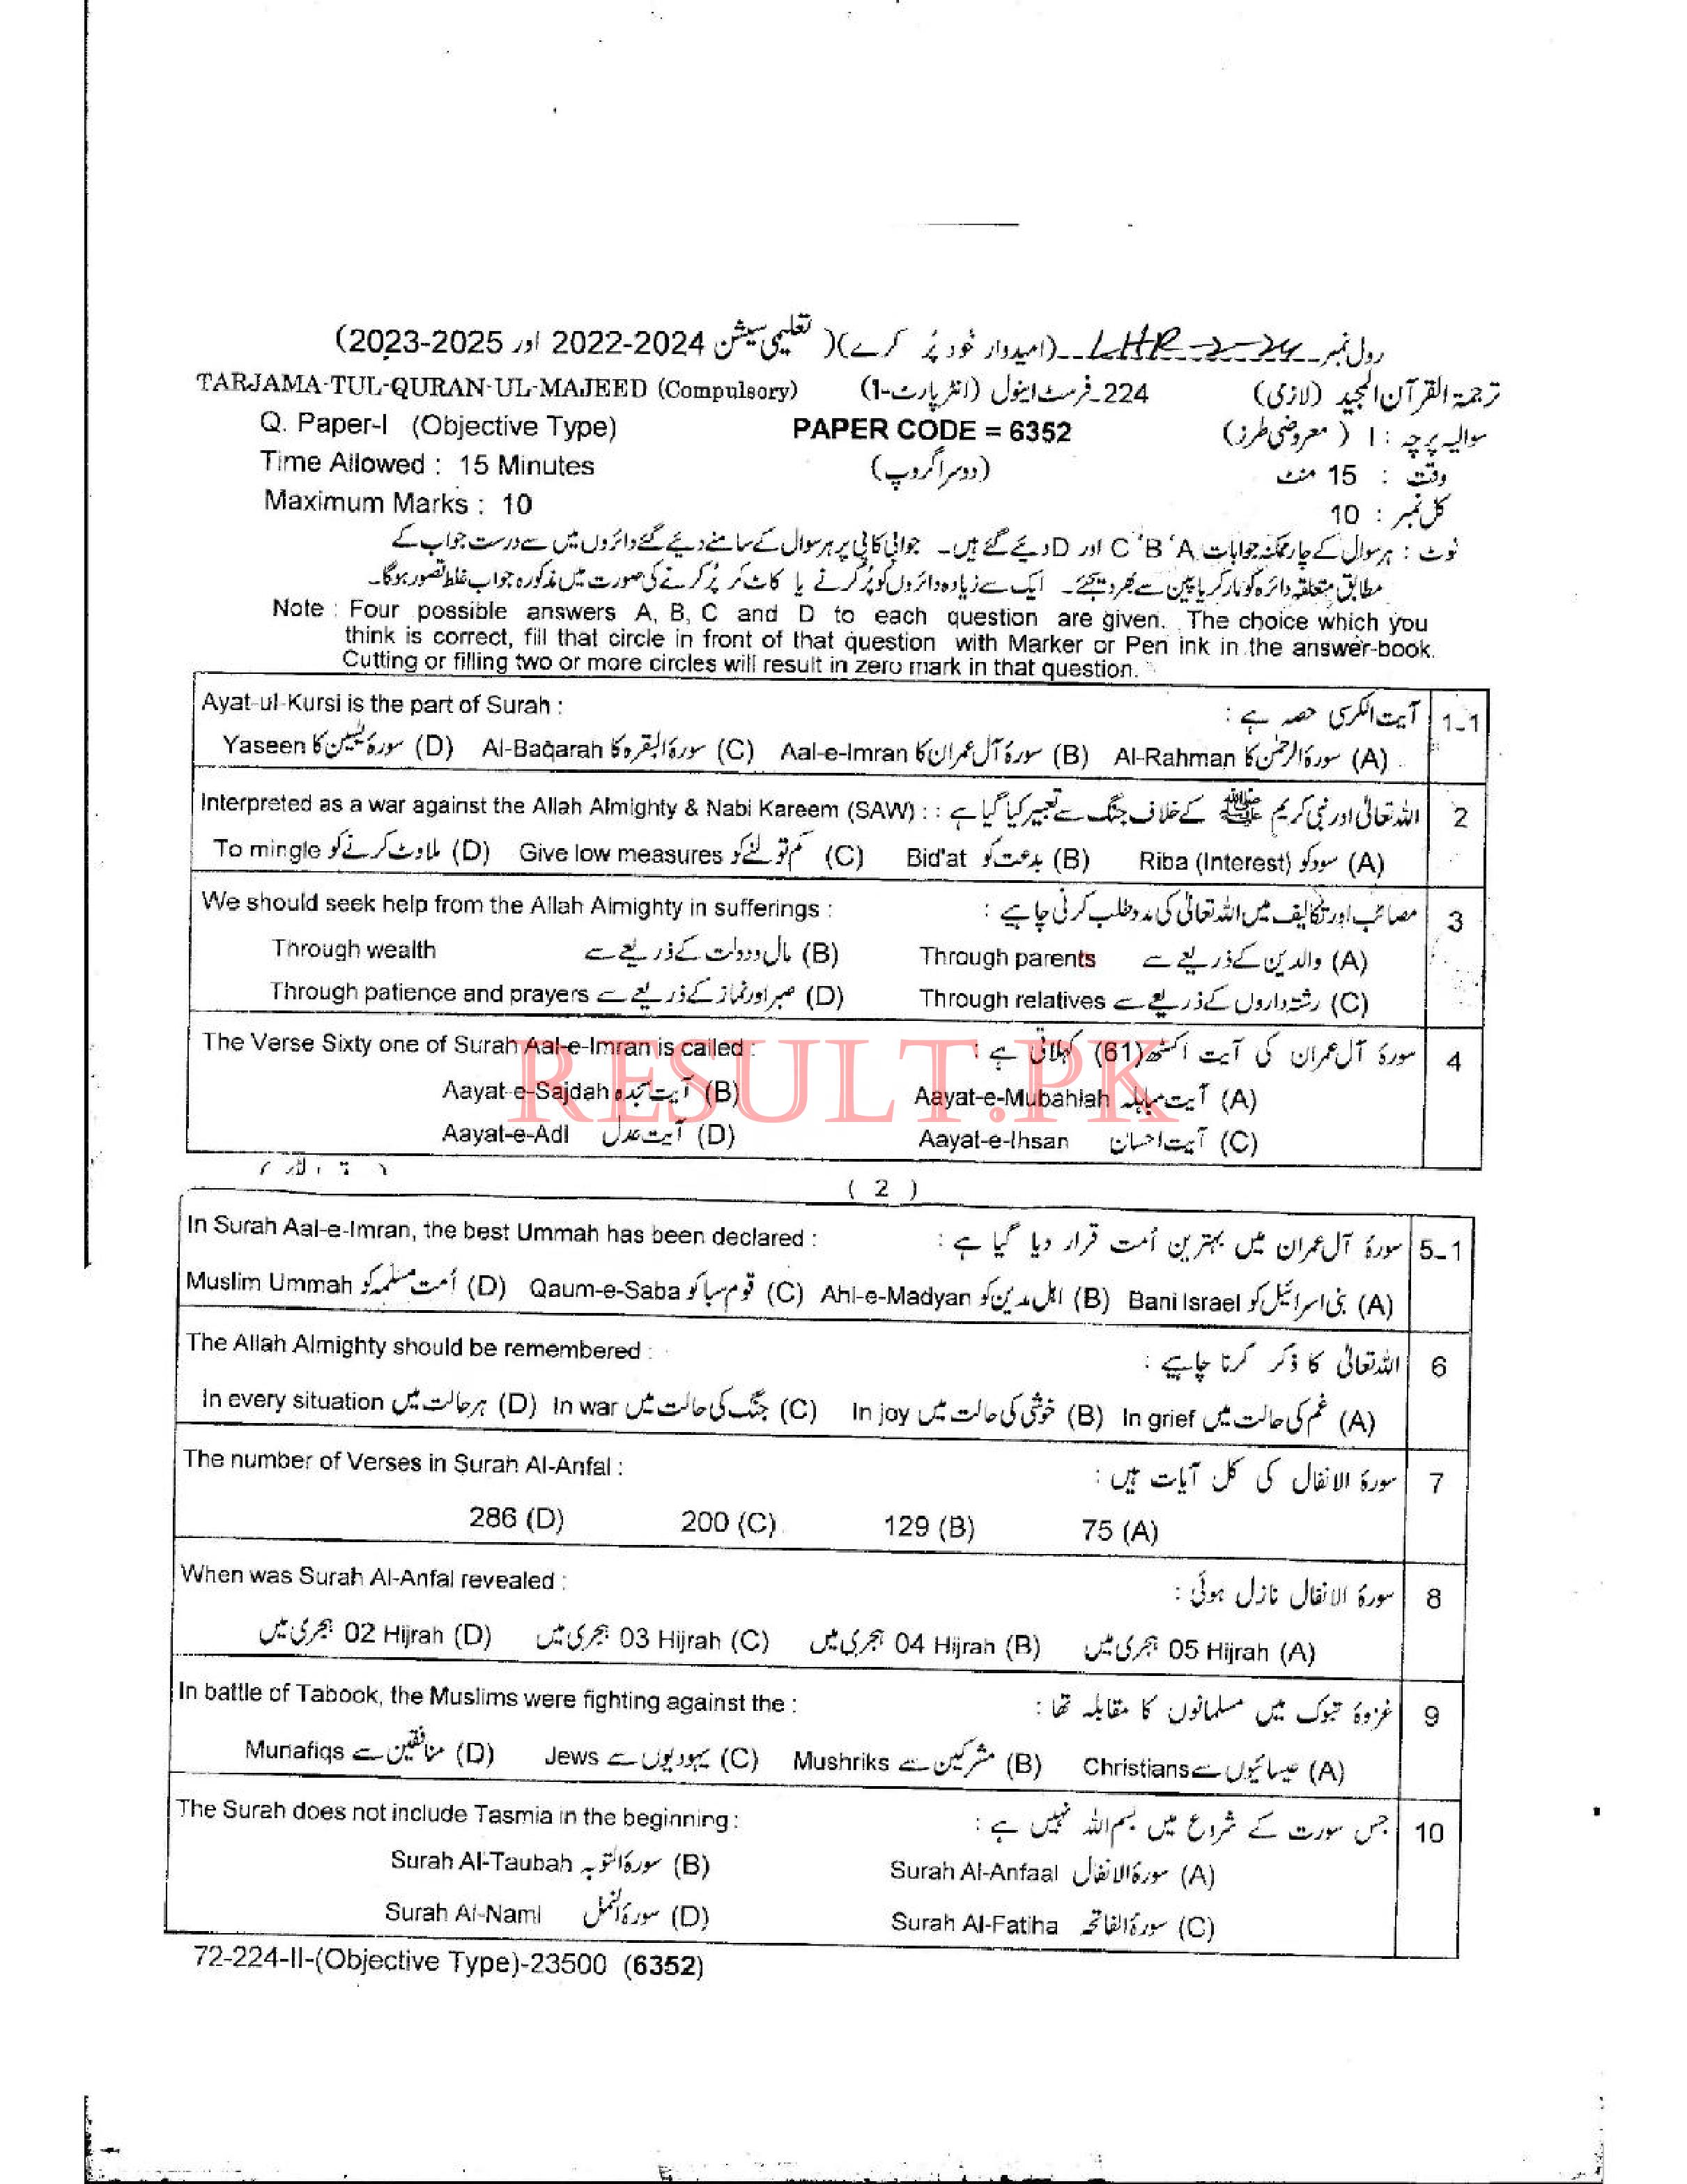 رول نمبر LHR-2-24 (امیدوار خود پُر کرے) (تعلیمی سیشن 2022-2024 اور 2023-2025)
TARJAMA-TUL-QURAN-UL-MAJEED (Compulsory) 224-فرسٹ اینول (انٹر پارٹ-1) ترجمۃ القرآن المجید (لازمی)
Q. Paper-I (Objective Type) PAPER CODE = 6352 سوالیہ پرچہ : I (معروضی طرز)
Time Allowed : 15 Minutes (دوسرا گروپ) وقت : 15 منٹ
Maximum Marks : 10 کل نمبر : 10
نوٹ : ہر سوال کے چار ممکنہ جوابات A، B، C اور D دیئے گئے ہیں۔ جوابی کاپی پر ہر سوال کے سامنے دیئے گئے دائروں میں سے درست جواب کے
مطابق متعلقہ دائرہ کو مارکر یا پین سے بھر دیجئے۔ ایک سے زیادہ دائروں کو پُر کرنے یا کاٹ کر پُر کرنے کی صورت میں مذکورہ جواب غلط تصور ہوگا۔
Note : Four possible answers A, B, C and D to each question are given. The choice which you
think is correct, fill that circle in front of that question with Marker or Pen ink in the answer-book.
Cutting or filling two or more circles will result in zero mark in that question.
Ayat-ul-Kursi is the part of Surah : آیت الکرسی حصہ ہے : 1-1
Yaseen سورۃ یٰسین کا (D) Al-Baqarah سورۃ البقرہ کا (C) Aal-e-Imran سورۃ آل عمران کا (B) Al-Rahman سورۃ الرحمٰن کا (A)
Interpreted as a war against the Allah Almighty & Nabi Kareem (SAW) : اللہ تعالیٰ اور نبی کریم ﷺ کے خلاف جنگ سے تعبیر کیا گیا ہے : 2
To mingle ملاوٹ کرنے کو (D) Give low measures کم تولنے کو (C) Bid'at بدعت کو (B) Riba (Interest) سود کو (A)
We should seek help from the Allah Almighty in sufferings : مصائب اور تکالیف میں اللہ تعالیٰ کی مدد طلب کرنی چاہیے : 3
Through wealth مال و دولت کے ذریعے سے (B) Through parents والدین کے ذریعے سے (A)
Through patience and prayers صبر اور نماز کے ذریعے سے (D) Through relatives رشتہ داروں کے ذریعے سے (C)
The Verse Sixty one of Surah Aal-e-Imran is called : سورۃ آل عمران کی آیت اکسٹھ (61) کہلاتی ہے : 4
Aayat-e-Sajdah آیت سجدہ (B) Aayat-e-Mubahlah آیت مباہلہ (A)
RESULT.PK
Aayat-e-Adl آیت عدل (D) Aayat-e-Ihsan آیت احسان (C)
( 2 )
In Surah Aal-e-Imran, the best Ummah has been declared : سورۃ آل عمران میں بہترین اُمت قرار دیا گیا ہے : 5-1
Muslim Ummah اُمت مسلمہ کو (D) Qaum-e-Saba قوم سبا کو (C) Ahl-e-Madyan اہل مدین کو (B) Bani Israel بنی اسرائیل کو (A)
The Allah Almighty should be remembered : اللہ تعالیٰ کا ذکر کرنا چاہیے : 6
In every situation ہر حالت میں (D) In war جنگ کی حالت میں (C) In joy خوشی کی حالت میں (B) In grief غم کی حالت میں (A)
The number of Verses in Surah Al-Anfal : سورۃ الانفال کی کل آیات ہیں : 7
286 (D) 200 (C) 129 (B) 75 (A)
When was Surah Al-Anfal revealed : سورۃ الانفال نازل ہوئی : 8
02 Hijrah ہجری میں (D) 03 Hijrah ہجری میں (C) 04 Hijrah ہجری میں (B) 05 Hijrah ہجری میں (A)
In battle of Tabook, the Muslims were fighting against the : غزوۂ تبوک میں مسلمانوں کا مقابلہ تھا : 9
Munafiqs منافقین سے (D) Jews یہودیوں سے (C) Mushriks مشرکین سے (B) Christians عیسائیوں سے (A)
The Surah does not include Tasmia in the beginning : جس سورت کے شروع میں بسم اللہ نہیں ہے : 10
Surah Al-Taubah سورۃ التوبہ (B) Surah Al-Anfaal سورۃ الانفال (A)
Surah Al-Naml سورۃ النمل (D) Surah Al-Fatiha سورۃ الفاتحہ (C)
72-224-II-(Objective Type)-23500 (6352)